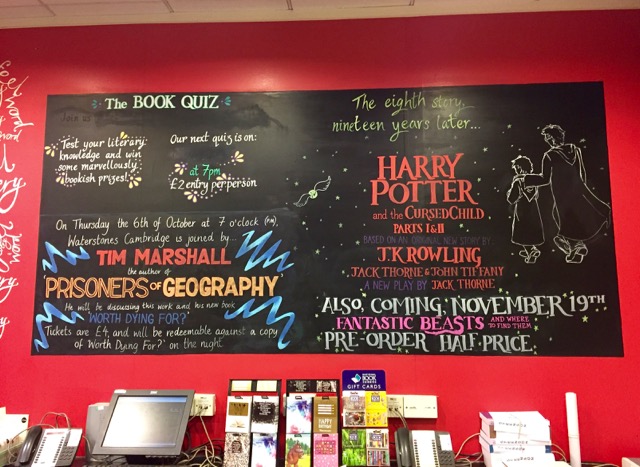 The BOOK QUIZ
Join us
Test your literary
knowledge and win
some marvellously
bookish prizes!
Our next quiz is on:
at 7pm
£2 entry per person
On Thursday the 6th of October at 7 o'clock (PM),
Waterstones Cambridge is joined by...
TIM MARSHALL
the author of
PRISONERS OF GEOGRAPHY
He will be discussing this work and his new book
'WORTH DYING FOR?'
Tickets are £4, and will be redeemable against a copy
of 'Worth Dying For?' on the night
The eighth story,
nineteen years later...
HARRY
POTTER
and the CURSED CHILD
PARTS I & II
BASED ON AN ORIGINAL NEW STORY BY
J.K. ROWLING
JACK THORNE & JOHN TIFFANY
A NEW PLAY BY JACK THORNE
ALSO, COMING NOVEMBER 19TH
FANTASTIC BEASTS AND WHERE TO FIND THEM
PRE-ORDER HALF PRICE
BOOK
GIFT CARDS